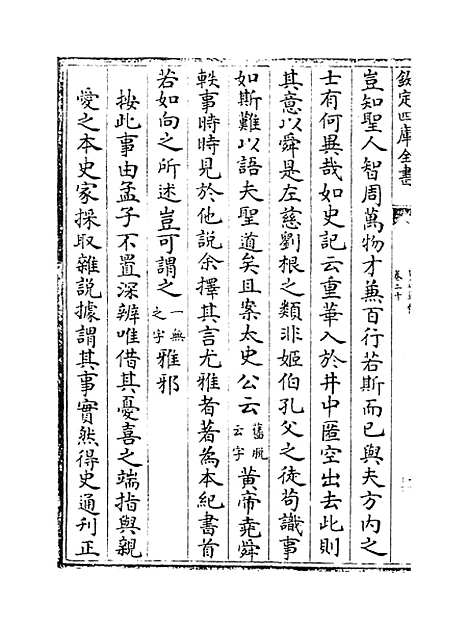 欽定四庫全書
卷二十
豈知聖人智周萬物才兼百行若斯而已與夫方內之
士有何異哉如史記云重華入於井中匿空出去此則
其意以舜是左慈劉根之類非姬伯孔父之徒苟識事
如斯難以語夫聖道矣且案太史公云舊脫云字黃帝堯舜
軼事時時見於他說余擇其言尤雅者著為本紀書首
若如向之所述豈可謂之一無之字雅邪
按此事由孟子不置深辨唯借其憂喜之端指與親
愛之本史家採取雜說據謂其事實然得史通刊正